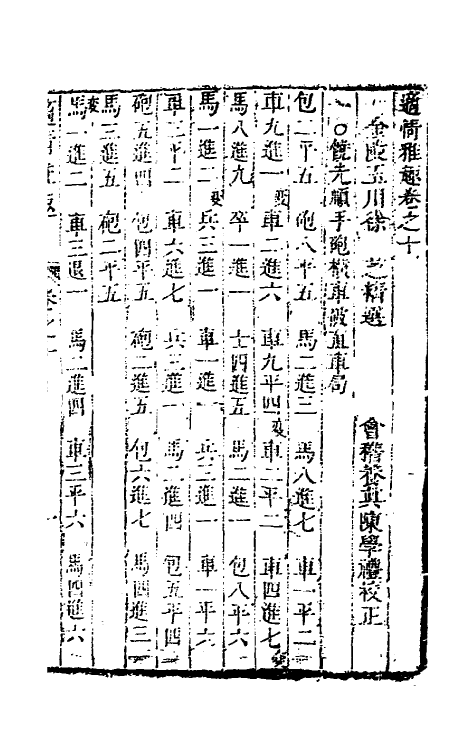 適情雅趣卷之十
金陵玉川徐 芝精選 會稽養真陳學禮校正
一○饒先順手砲橫車破直車局
包二平五 砲八平五 馬二進三 馬八進七 車一平二
車九進一 變 車二進六 車九平四 變 車二平二 車四進七 變
馬八進九 卒一進一 士四進五 馬二進一 包八平六
馬一進二 變 兵三進一 車一進一 兵三進一 車一平六
車二平二 車六進七 兵三進一 馬二進四 包五平四
砲五進四 包四平五 砲二進五 包六進七 馬四進三
馬三進五 砲二平五
變 馬一進二 車三退一 馬二進四 車三平六 馬四進六
適情雅趣